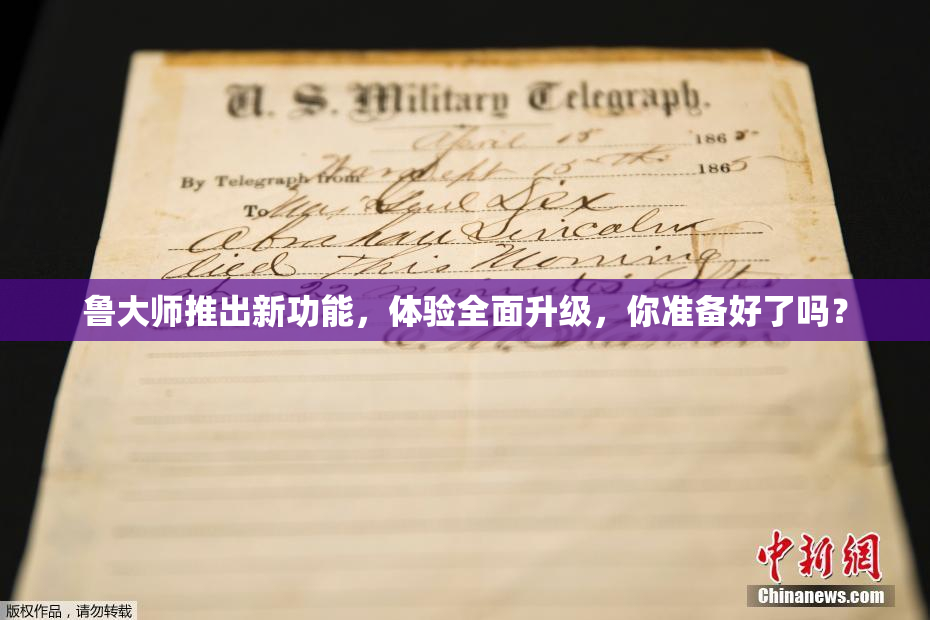 U. S. Military Telegraph.
April 15 1865
By Telegraph from War Dept 15th 1865
To Maj Genl Dix
Abraham Lincoln
died This Morning
at 22 minutes after
鲁大师推出新功能，体验全面升级，你准备好了吗？
E. M. Stanton
中新网
Chinanews.com
版权作品，请勿转载